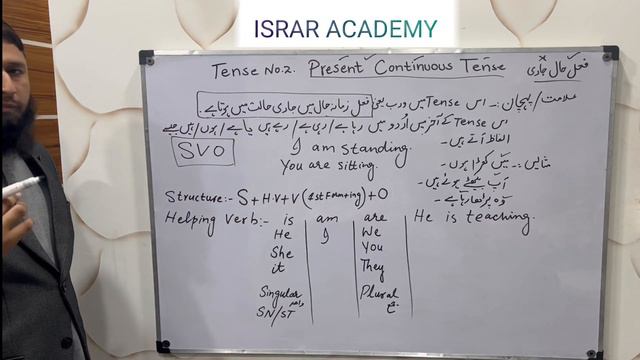 ISRAR ACADEMY
Tense No.2. Present Continuous Tense فعل حال جاری
علامت/پہچان:- اس Tense میں ورب یعنی فعل زمانہ حال میں جاری حالت میں ہوتا ہے۔
اس Tense کے آخر میں اُردو میں رہا ہے/رہی ہے/رہے ہیں یا ہے/ہوں/ہیں جیسے
الفاظ آتے ہیں۔
SVO I am standing. مثالیں:- میں کھڑا ہوں۔
You are sitting. آپ بیٹھے ہوئے ہیں۔
Structure:- S+H.V+V(1st Form+ing)+O وہ پڑھا رہا ہے۔
Helping verb:- is am are He is teaching.
He I We
She You
it They
Singular واحد Plural
SN/ST جمع